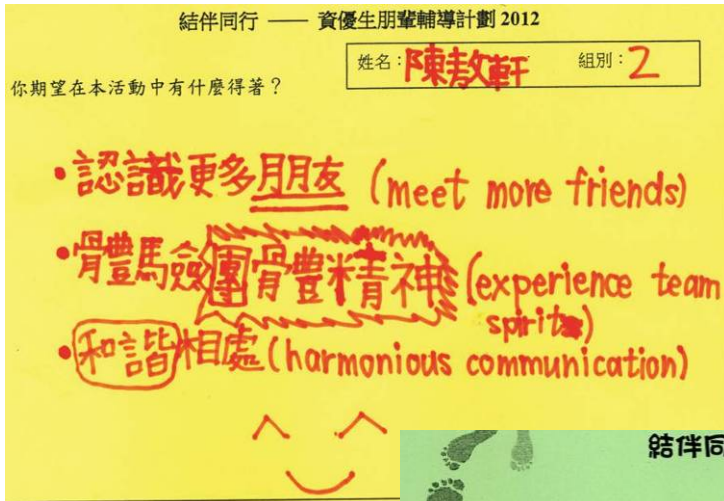 結伴同行 —— 資優生朋輩輔導計劃 2012
姓名：陳敖軒 組別：2
你期望在本活動中有什麼得著？
•認識更多朋友 (meet more friends)
•體驗團體精神 (experience team
spirit)
•和諧相處 (harmonious communication)
結伴同